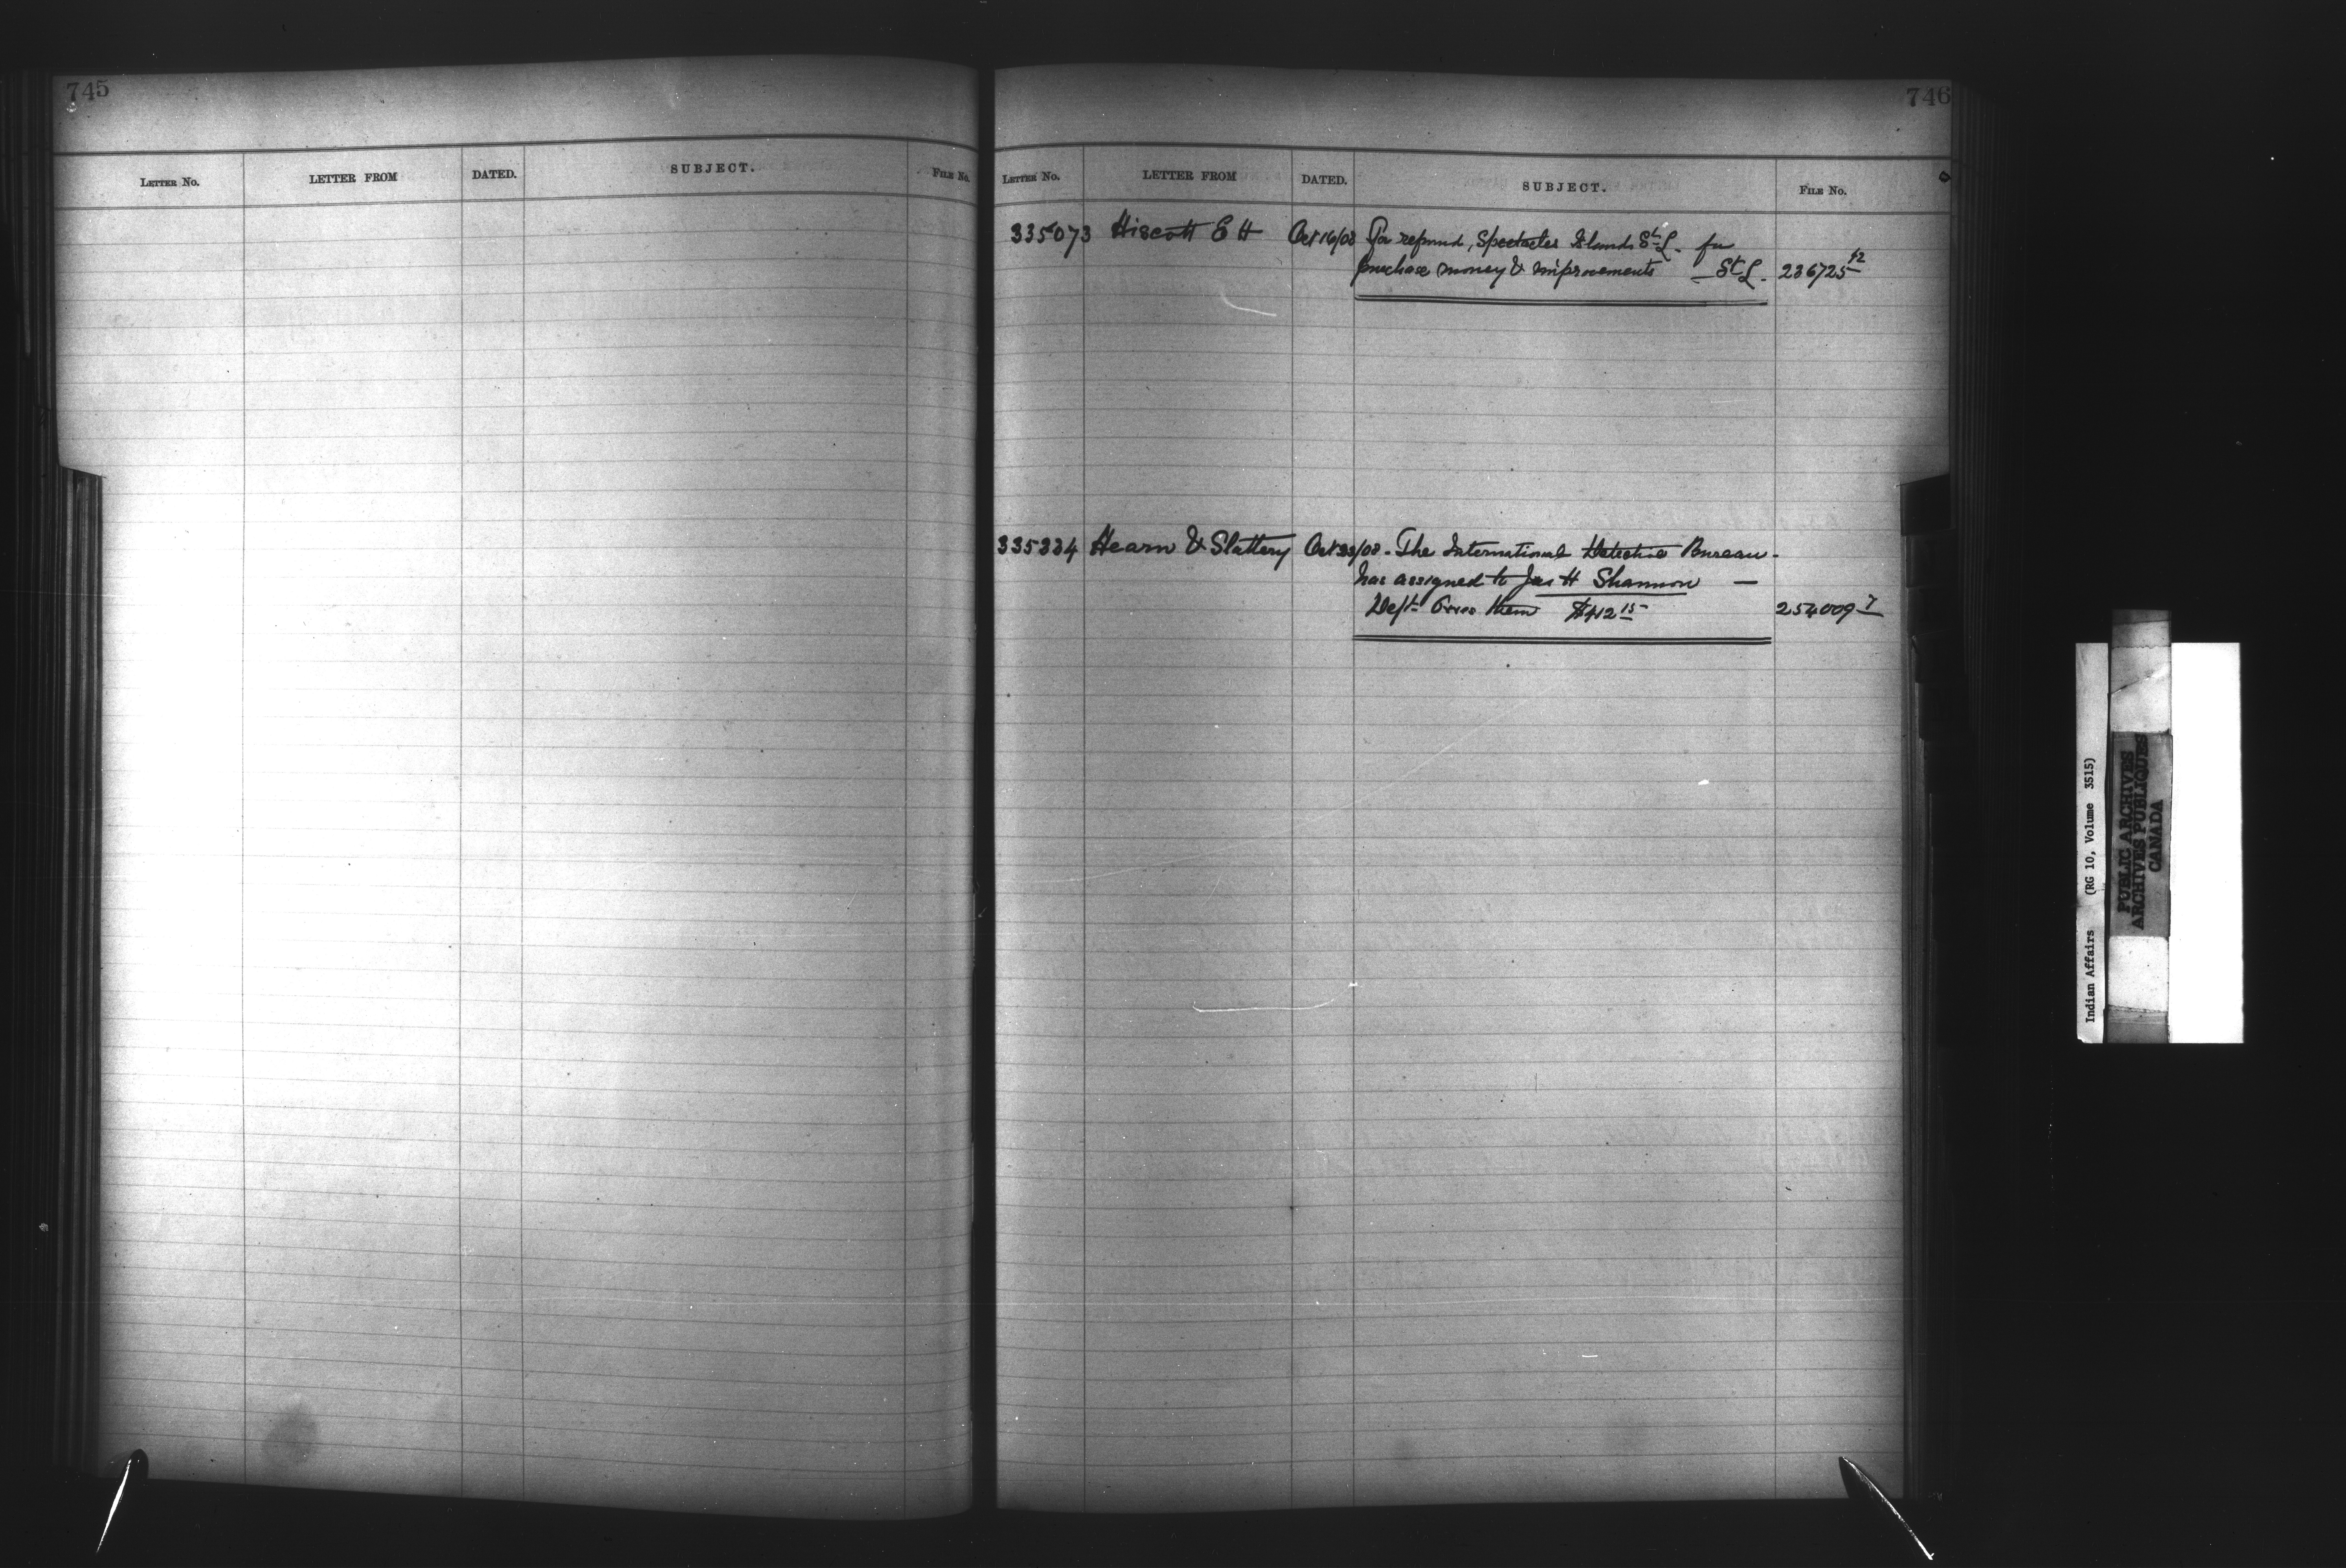 745
LETTER No. LETTER FROM DATED. SUBJECT. FILE No.
746
LETTER No. LETTER FROM DATED. SUBJECT. FILE No.
335073 Hiscott E H Oct 16/08 For refund, Spectacles Islands St L. for
purchase money & improvements — St L. 236725 42
335334 Hearn & Slattery Oct /08 - The International Detective Bureau -
has assigned to Jas H Shannon —
Dept owes them $412 15 254009 7
Indian Affairs (RG 10, Volume 3515)
PUBLIC ARCHIVES
ARCHIVES PUBLIQUES
CANADA